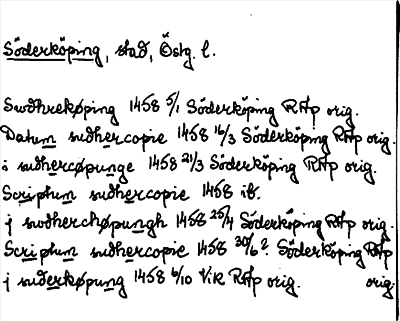 Söderköping, stad, Östg. l.
Swdhrekøping 1458 5/1 Söderköping RAp orig.
Datum sudhercopie 1458 16/3 Söderköping RAp orig.
i sudhercøpunge 1458 21/3 Söderköping RAp orig.
Scriptum sudhercopie 1458 ib.
j swdherchøpungh 1458 25/4 Söderköping RAp orig.
Scriptum sudhercopie 1458 30/6? Söderköping RAp orig.
j suderkøpung 1458 6/10 Vik RAp orig.